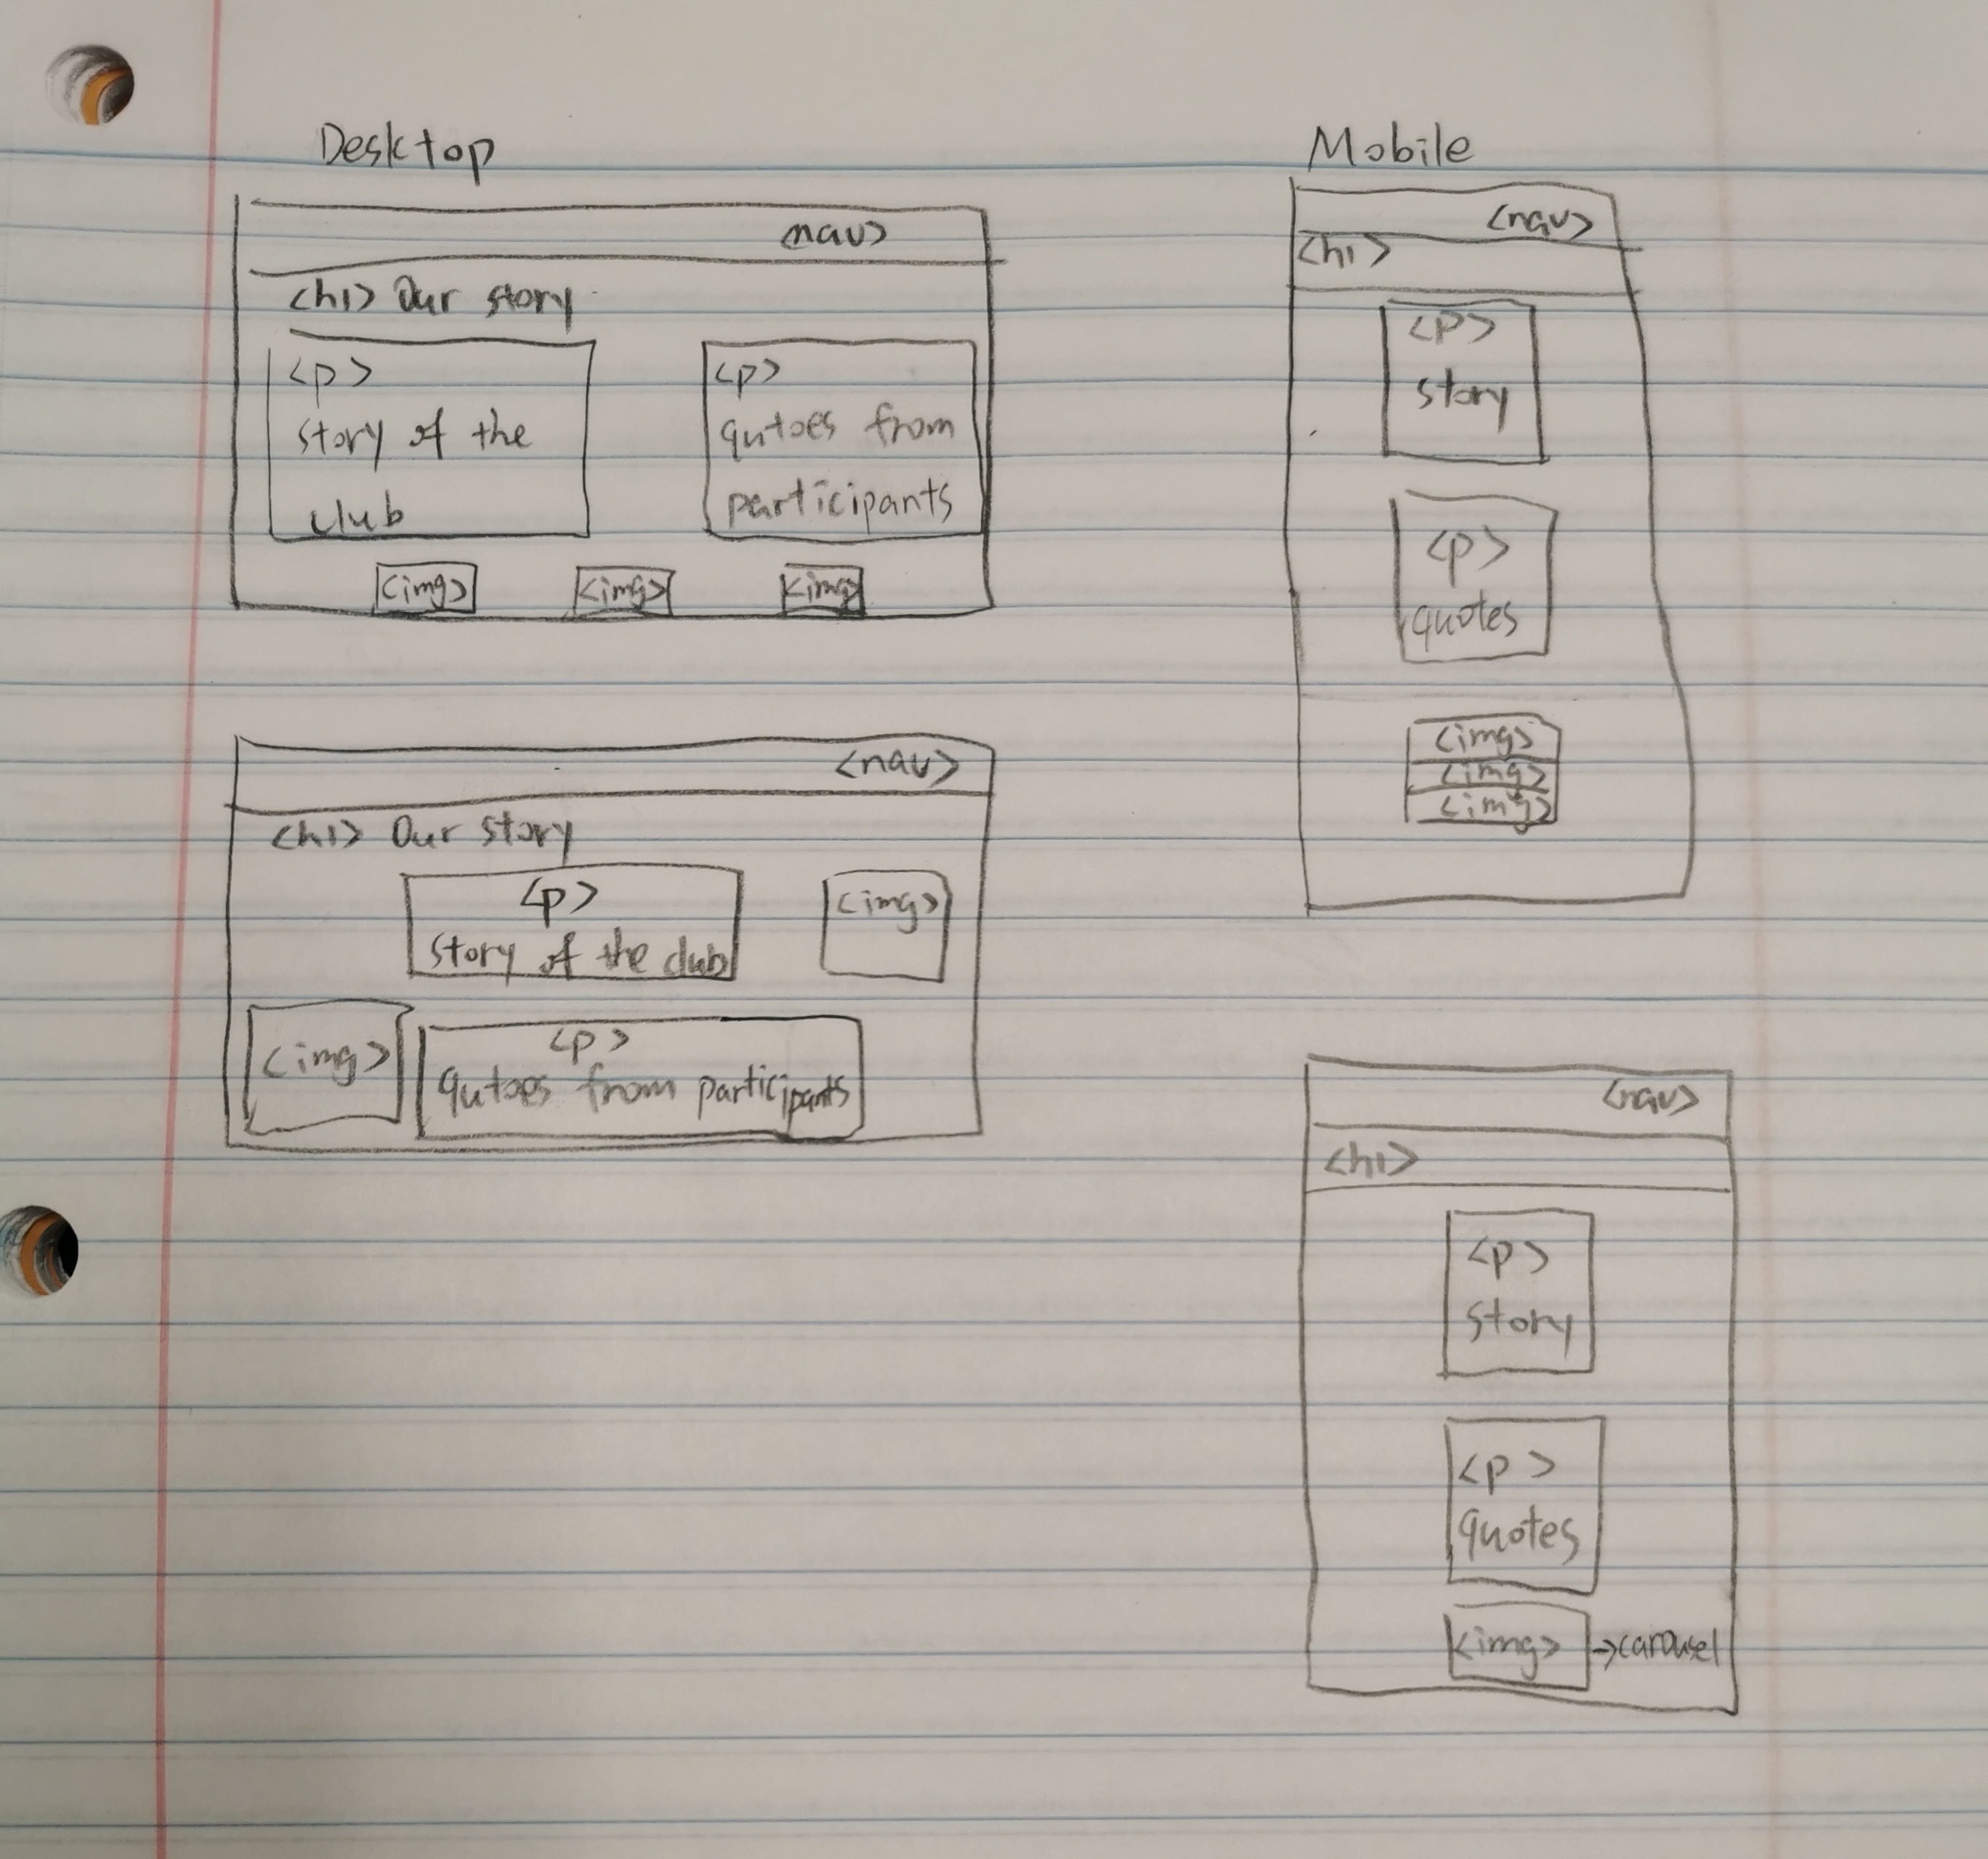 Desktop
<nav>
<h1> Our story
<p>
story of the
club
<p>
qutoes from
participants
<img>
<img>
<img>
<nav>
<h1> Our story
<p>
story of the club
<img>
<img>
<p>
qutoes from participants
Mobile
<nav>
<h1>
<p>
story
<p>
quotes
<img>
<img>
<img>
<nav>
<h1>
<p>
story
<p>
quotes
<img> →carousel